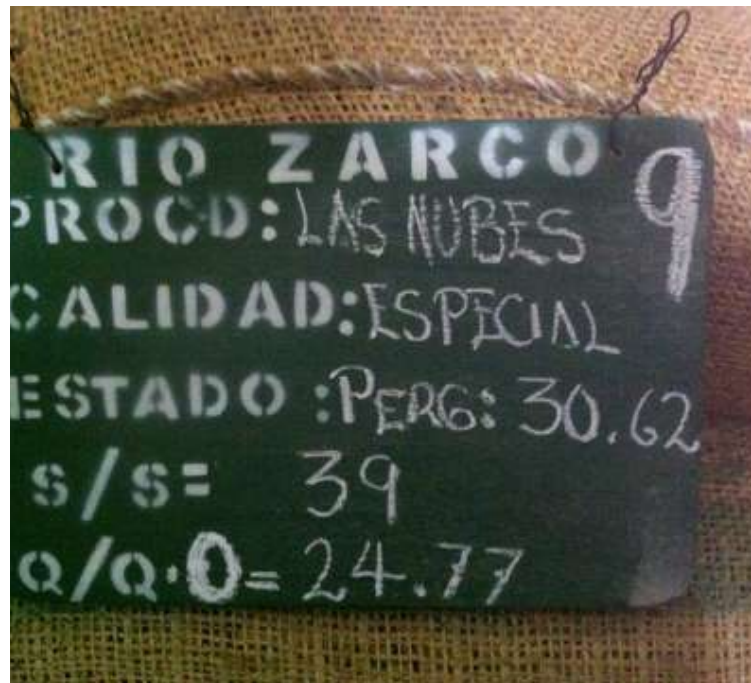 RIO ZARCO 9
PROCD: LAS NUBES
CALIDAD: ESPECIAL
ESTADO : PERG: 30.62
S/S= 39
Q/Q.O= 24.77